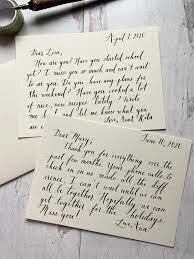 April 1, 2020
Dear Lisa,
How are you? Have you started school
yet? I miss you so much and can't wait
to see you. Do you have any plans for
the weekend? Have you cooked a lot
of nice, new recipes lately? Write
me and let me know what you
Love, Aunt
June 10, 2020
Dear Mary,
Thank you for everything over the
past few months. Your phone calls to
check on us made all the diff
erence. I can't wait until we can
all be together. Hopefully we can
get together for the holidays.
Miss you!
Love, Ana